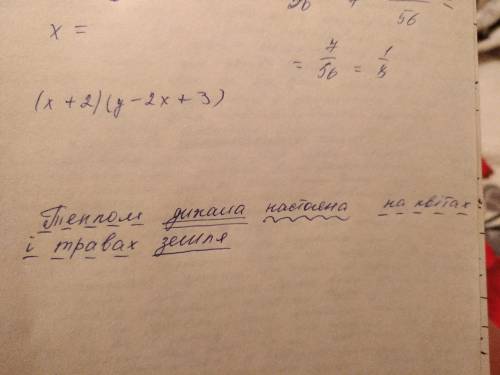 56
x =
= 7/56 = 1/8
(x + 2)(y - 2x + 3)
Теплом дихала настояна на квітах
і травах земля